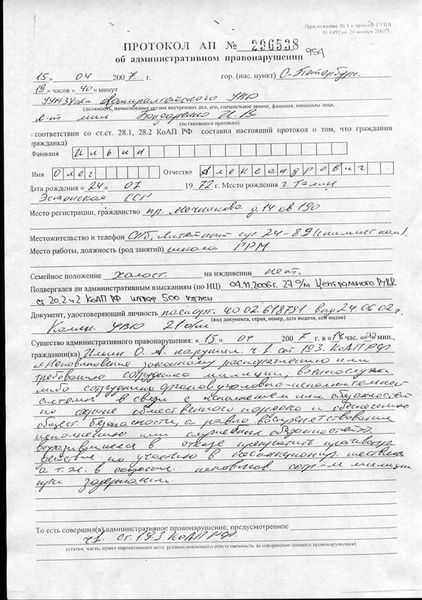 Приложение № 1 к приказу ГУВД
№ 1492 от 24 ноября 2005 г.
ПРОТОКОЛ АП № 296538
954
об административном правонарушении
15 04 2007 г. гор. (нас. пункт) С-Петербург
18 часов 40 минут
УУМ Адмиралтейского УВД
(должность, наименование органа внутренних дел, о/м, специальное звание, фамилия, инициалы лица,
л-т мил Бондаренко И В
составившего протокол)
в соответствии со ст.ст. 28.1, 28.2 КоАП РФ составил настоящий протокол о том, что гражданин
(гражданка)
Фамилия Ильин
Имя Олег Отчество Александрович
Дата рождения «24» 07 1972 г. Место рождения г Талли
Эстонская ССР
Место регистрации, гражданство пр. Мечникова д. 14 кв 190
Местожительство и телефон СПб, Литейный 24-89
Место работы, должность (род занятий) школа
Семейное положение холост. на иждивении нет.
Подвергался ли административным взысканиям (по ИЦ) 09.11.2006г. 27 о/м Центрального РУВД
ст 20.2 ч2 КоАП РФ штраф 500 рублей
Документ, удостоверяющий личность паспорт. 40 02 618781 выд 24.06.02г.
(вид документа, серия, номер, дата выдачи, кем выдан)
21 о/м
Существо административного правонарушения: « 15 » 04 2007 г. в «18 час. 00 мин.,
гражданин(ка) Ильин О. А. нарушил ч. 1 ст 19.3 КоАП РФ
«Неповиновение законному распоряжению или
требованию сотрудника милиции, военнослужащ
либо сотрудника органов уголовно-исполнительной
системы в связи с исполнением ими обязанностей
по охране общественного порядка и обеспечению
общест безопасности, а равно воспрепятствование
исполнению ими служебных обязанностей»
выразившееся в отказе прекратить
действие по участию в
а т.ж. в неповинов. сотр-м милиции
при задержании.
То есть совершил(а) административное правонарушение, предусмотренное
ч1 ст. 19.3 КоАП РФ
(статья, часть, пункт нормативного акта, устанавливающего ответственность за совершение данного правонарушения)